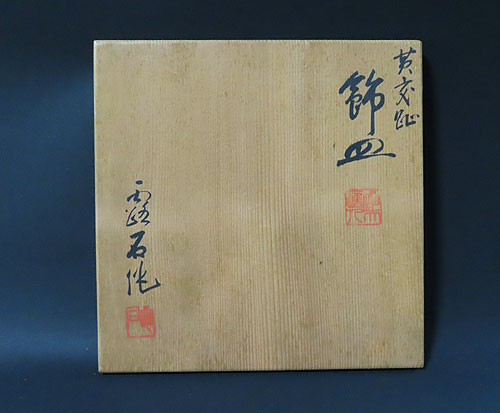 黄交趾
飾皿
露石作